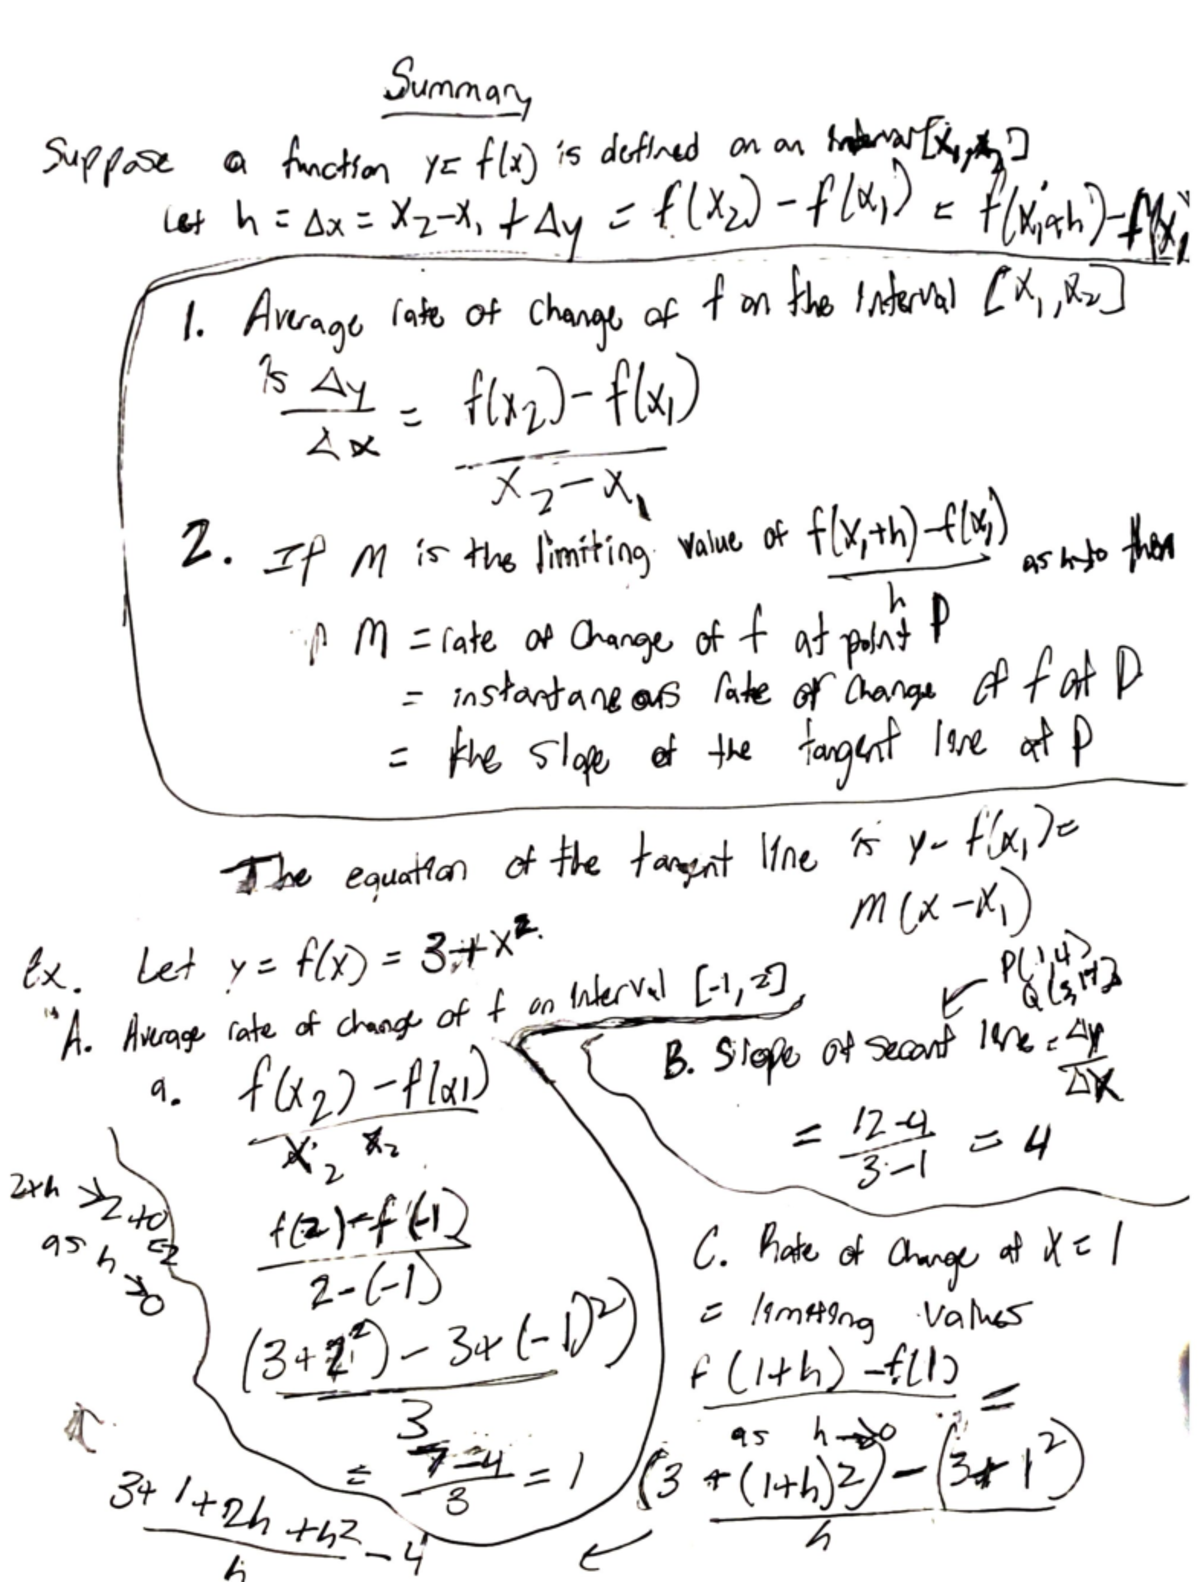 Summary
Suppose a function y = f(x) is defined on an interval [x₁, x₂]
Let h = Δx = x₂-x₁ + Δy = f(x₂) - f(x₁) = f(x₁+h) - f(x₁
1. Average rate of change of f on the interval [x₁, x₂]
is Δy/Δx = f(x₂) - f(x₁) / x₂ - x₁
2. If M is the limiting value of f(x₁+h) - f(x₁) / h as h→o then
M = rate of change of f at point P
= instantaneous rate of change of f at P
= the slope of the tangent line at P
The equation of the tangent line is y - f(x₁) =
m(x - x₁)
Ex. Let y = f(x) = 3 + x².
A. Average rate of change of f on interval [-1, 2]
a. f(x₂) - f(x1) / x₂ x₂
f(2) - f(-1) / 2-(-1)
(3+2²) - 3+(-1)²) / 3
= 7-4 / 3 = 1
P(1,4)
Q(3,12)
B. Slope of secant line = Δy/Δx
= 12-4 / 3-1 = 4
C. Rate of change at x = 1
= limiting values
f(1+h) - f(1) =
as h→0
(3 + (1+h)2) - (3+1²) / h
3+1+2h+h2 - 4 / h
2+h → 2+0
as h =2
→0